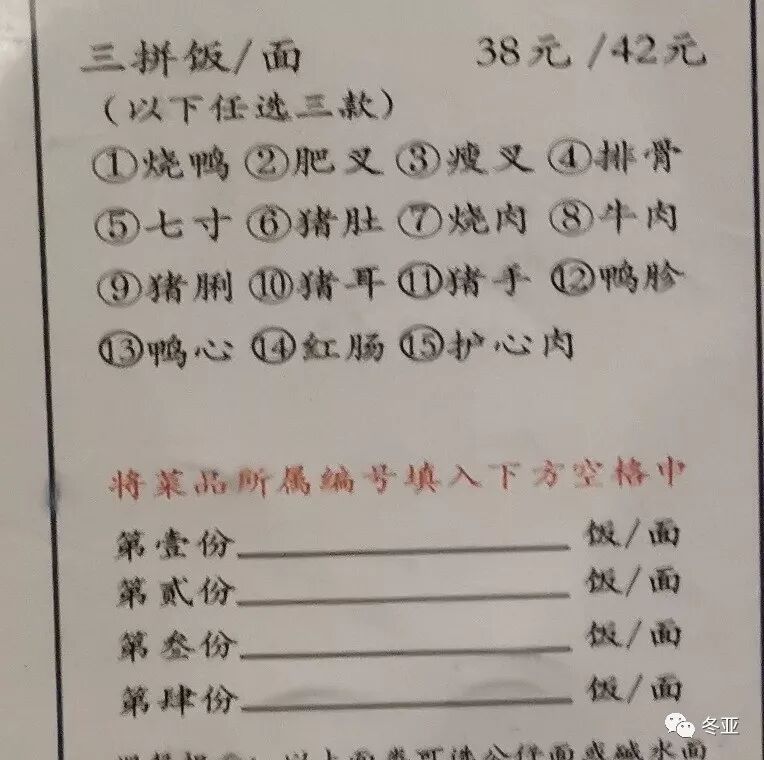 三拼饭/面 38元/42元
(以下任选三款)
①烧鸭 ②肥叉 ③瘦叉 ④排骨
⑤七寸 ⑥猪肚 ⑦烧肉 ⑧牛肉
⑨猪脷 ⑩猪耳 ⑪猪手 ⑫鸭胗
⑬鸭心 ⑭紅肠 ⑮护心肉
将菜品所属编号填入下方空格中
第壹份 饭/面
第贰份 饭/面
第叁份 饭/面
第肆份 饭/面
以上面类可选公仔面或碱水面
冬亚